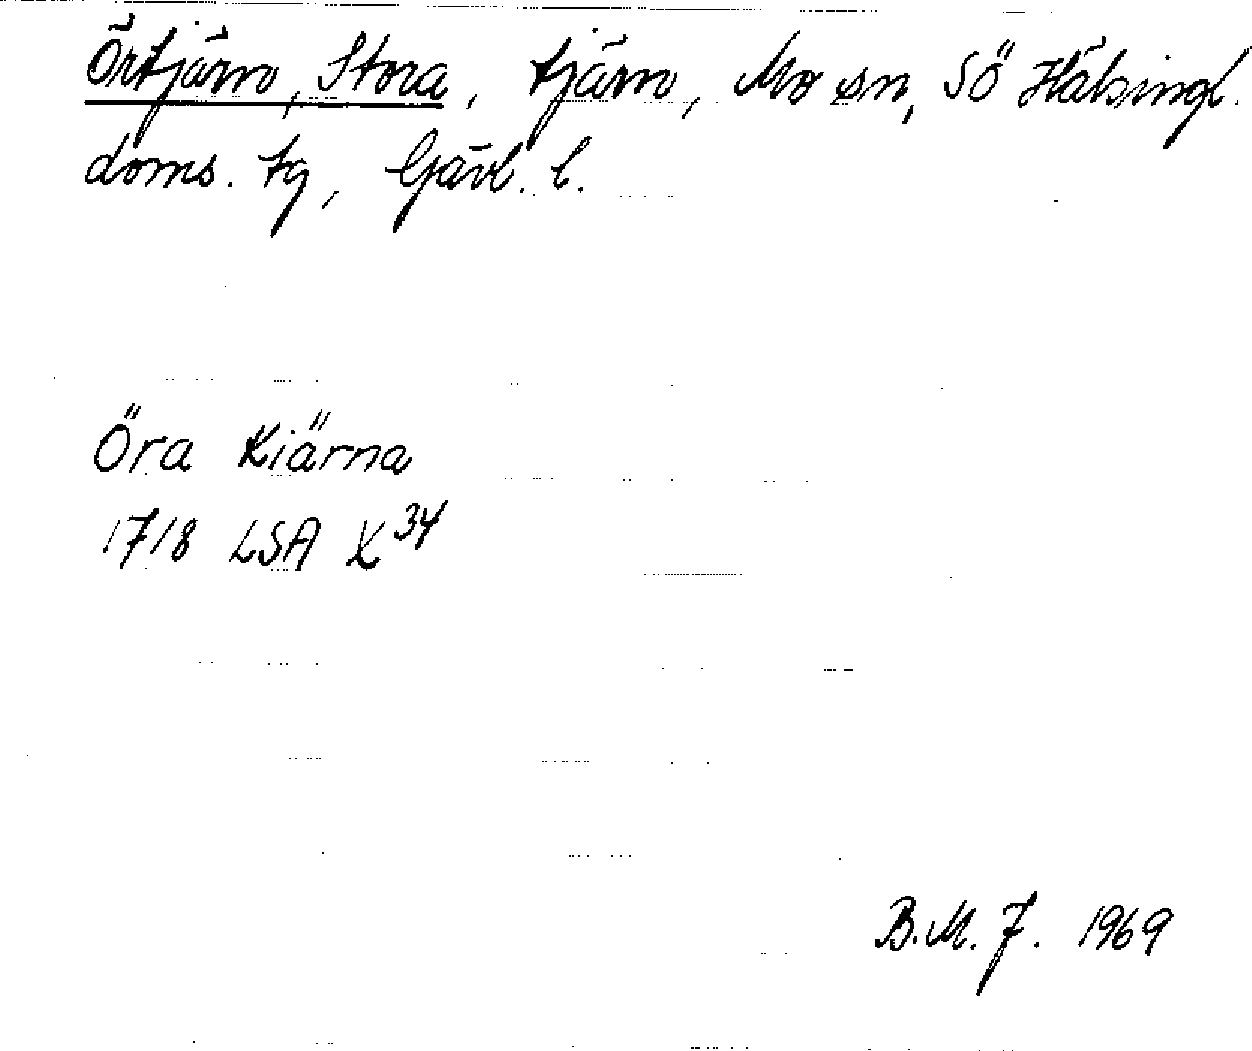 Örtjärn, Stora, tjärn, Mo sn, Sö Hälsingl.
doms. tg, Gävl. l.
Öra Kiärna
1718 LSA X 34
B.M.F. 1969